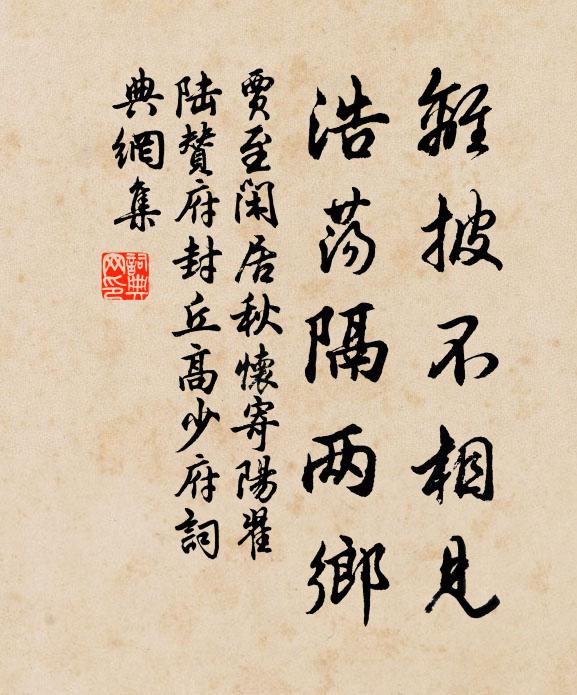 離披不相見
浩蕩隔两鄉
賈至閑居秋懷寄陽翟
陸贊府封丘高少府詞
典網集
詞典网印